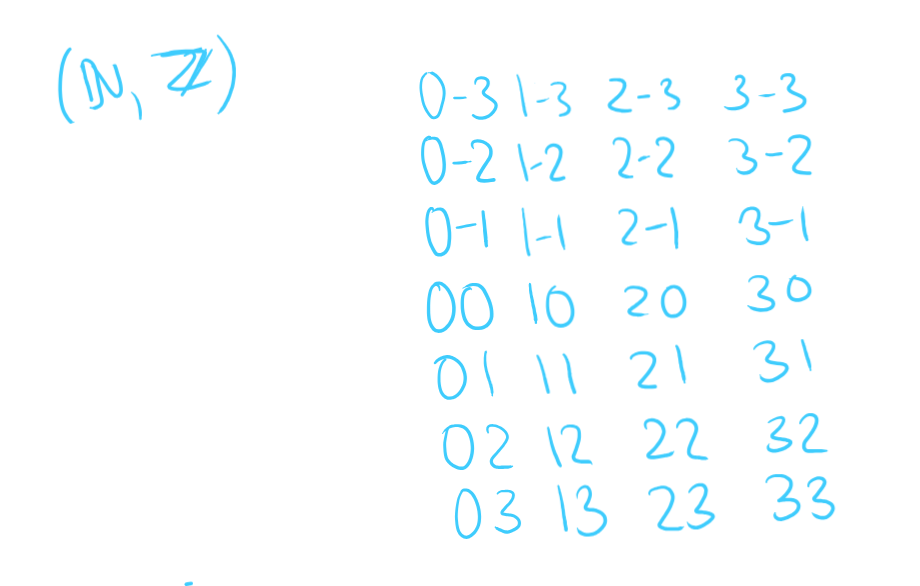 (ℕ, ℤ)
0-3 1-3 2-3 3-3
0-2 1-2 2-2 3-2
0-1 1-1 2-1 3-1
00 10 20 30
01 11 21 31
02 12 22 32
03 13 23 33